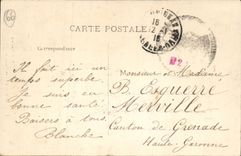 CARTE POSTALE
Correspondance
Il fait ici un
temps superbe
Je suis en
bonne santé
Baisers à tous
Blanche
Monsieur et Madame
B. Esquerre
Merville
Canton de Grenade
Haute-Garonne